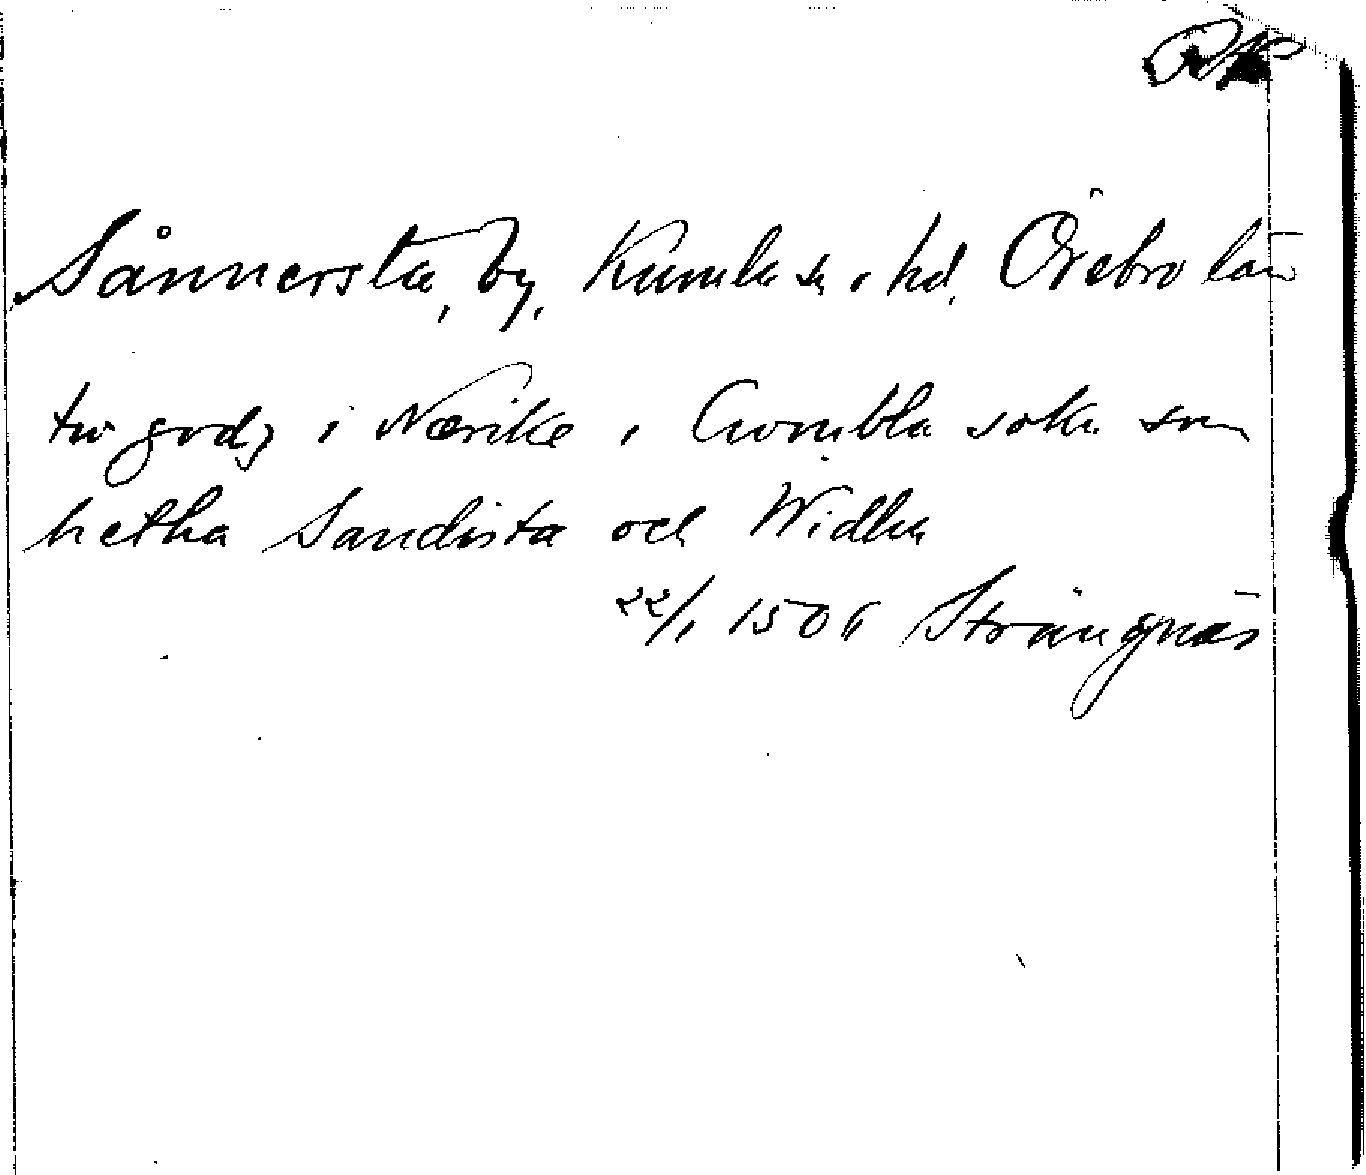 Sånnersta, by, Kumla sn o. hd, Örebro län
tw godz i Nærike i Cwmbla sokn som
hetha Sandista och Widha
22/1 1506 Strängnäs